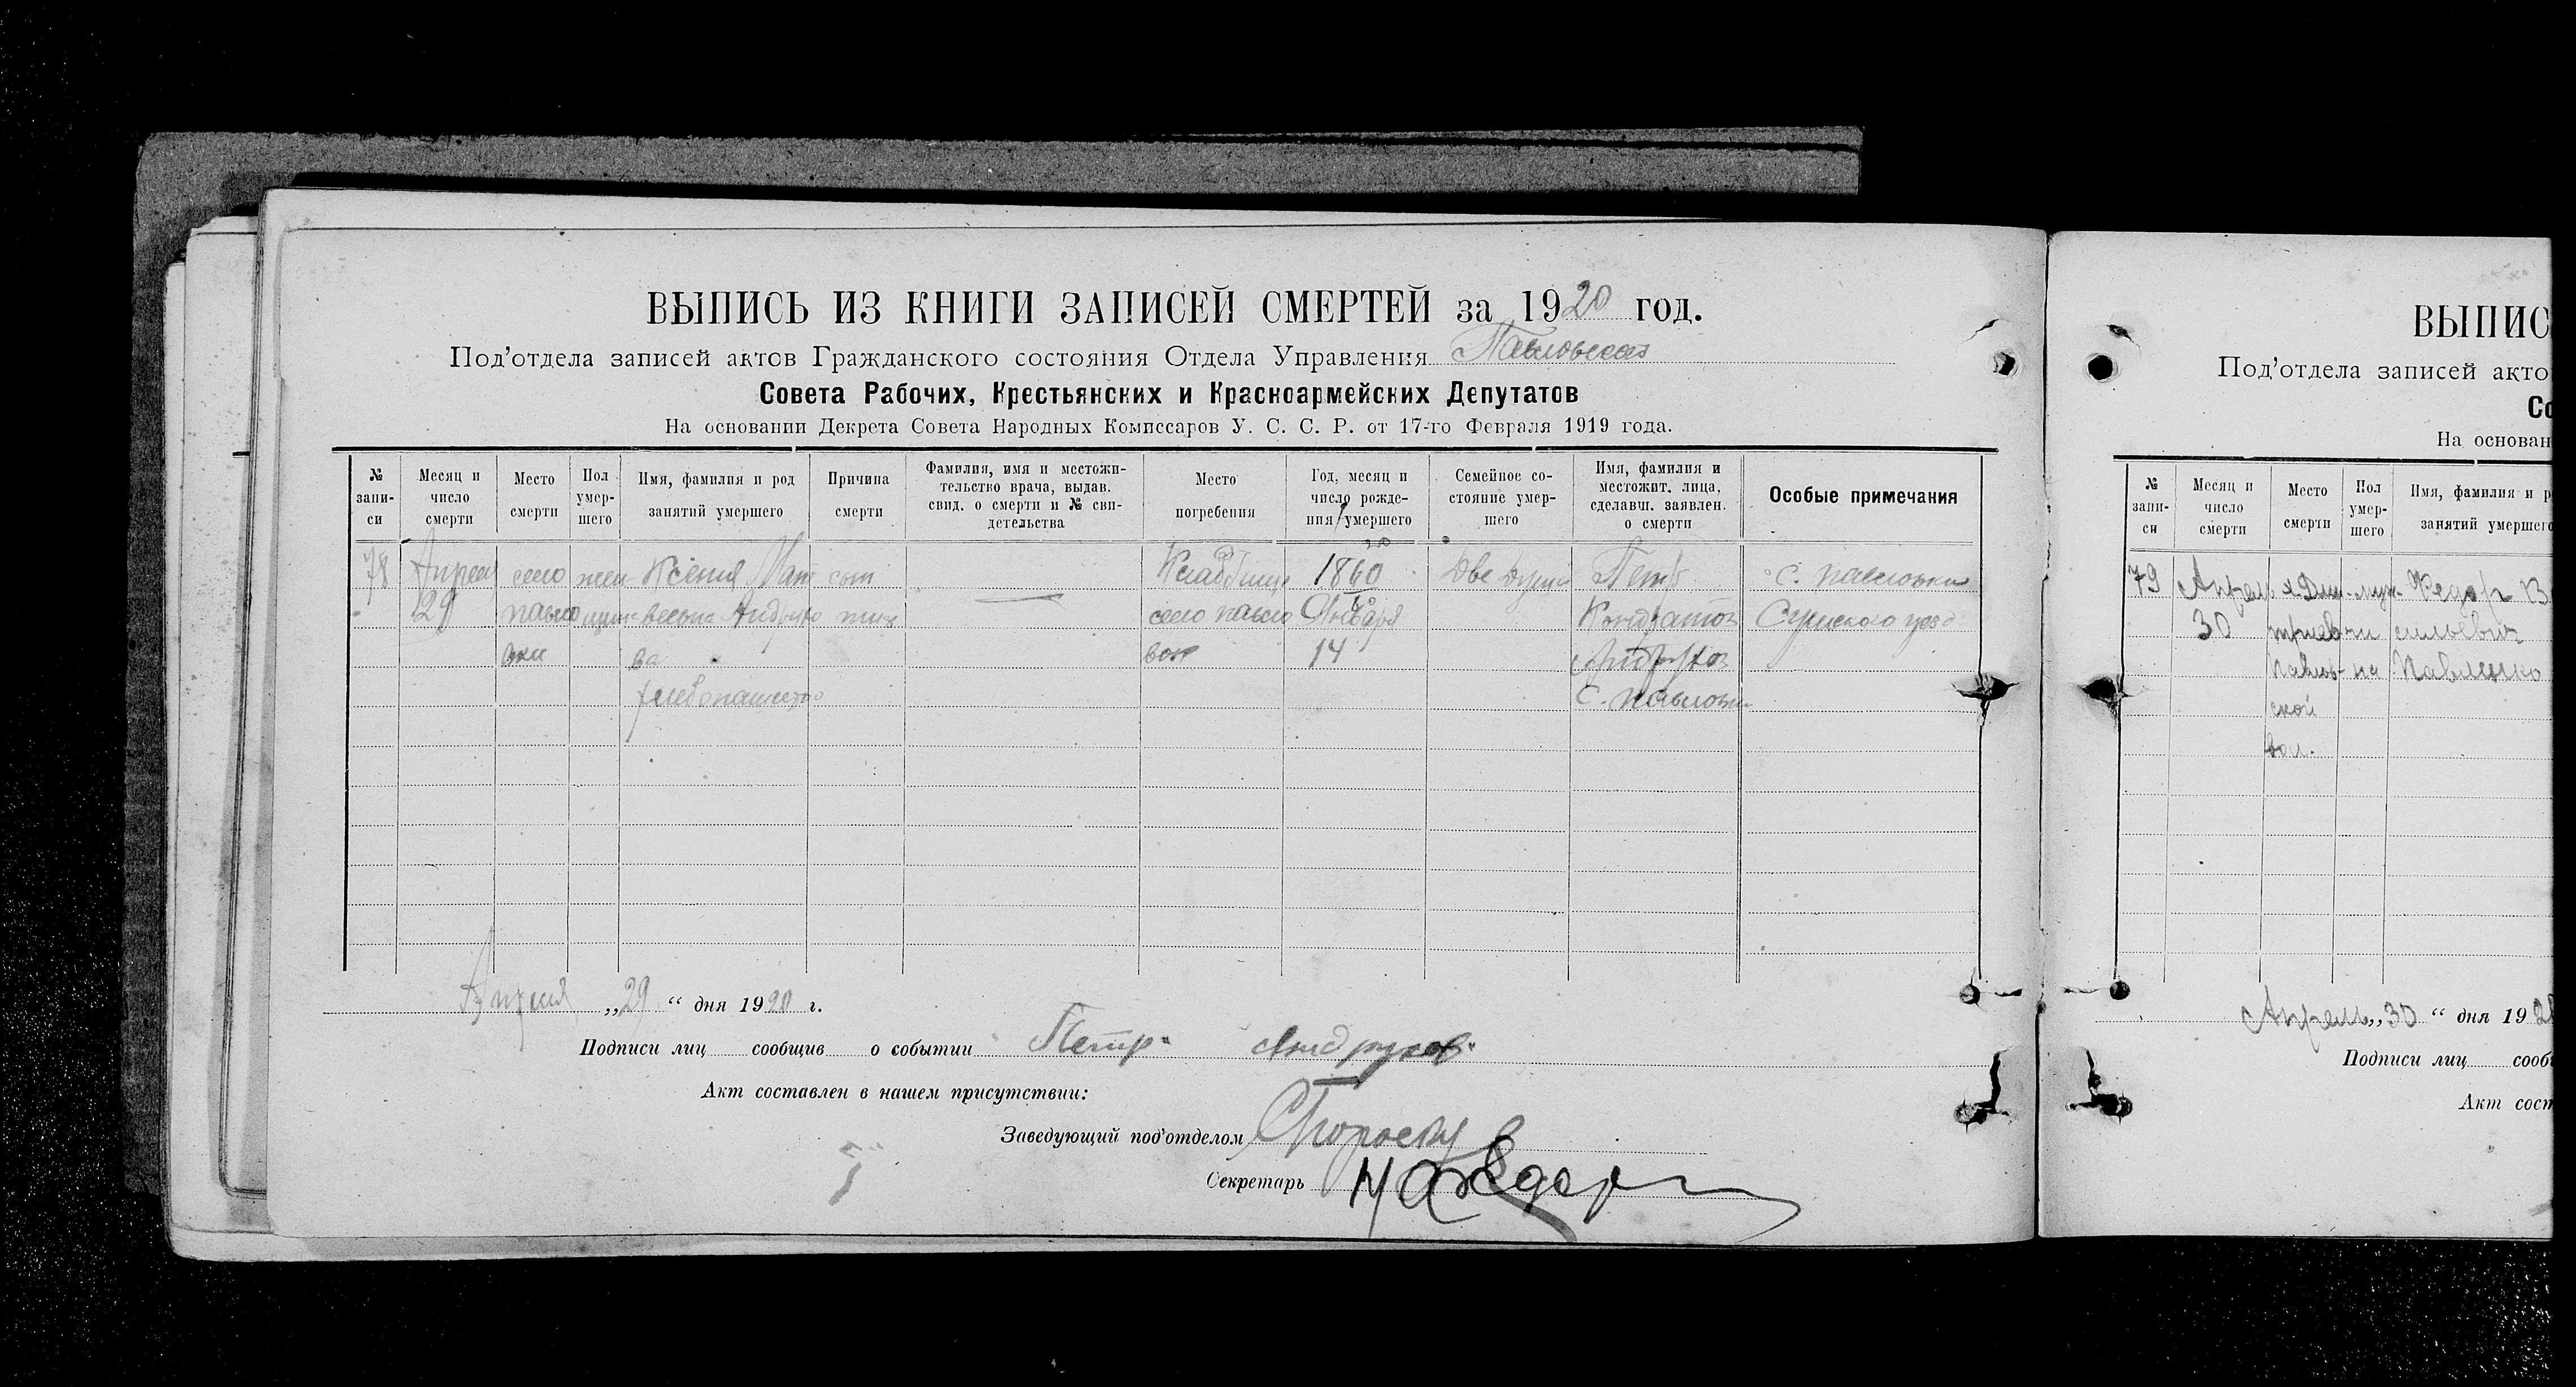 ВЫПИСЬ ИЗ КНИГИ ЗАПИСЕЙ СМЕРТЕЙ за 1920 год.
Под'отдела записей актов Гражданского состояния Отдела Управления Павловская
Совета Рабочих, Крестьянских и Красноармейских Депутатов
На основании Декрета Совета Народных Комиссаров У. С. С. Р. от 17-го Февраля 1919 года.
№ запи-си
Месяц и число смерти
Место смерти
Пол умер-шего
Имя, фамилия и род занятий умершего
Причина смерти
Фамилия, имя и местожи-тельство врача, выдав. свид. о смерти и № сви-детельства
Место погребения
Год, месяц и число рожде-ния умершего
Семейное со-стояние умер-шего
Имя, фамилия и местожит. лица, сделавш. заявлен. о смерти
Особые примечания
78 Апреля село жен Ксения Мат сып Кладбище 1860 Две души Петр с. Павловки
29 павло щин веевна Андрухо тиф село павло Января Кондратов Сумского уезд
вки ва вки 14 Андрухов
хлебопашество с. Павловки
Апреля „29“ дня 1920 г.
Подписи лиц сообщив о событии Петр Андрухов
Акт составлен в нашем присутствии:
Заведующий под'отделом
Секретарь
ВЫПИС
Под'отдела записей акто
Со
На основан
№ запи-си
Месяц и число смерти
Место смерти
Пол умер-шего
Имя, фамилия и р
занятий умершего
79 Апрель х. Дми муж Федор В
30 триевки чи сильевич
Павлов на Павленко
ской
вол.
Апрель „30“ дня 192
Подписи лиц сооб
Акт сост